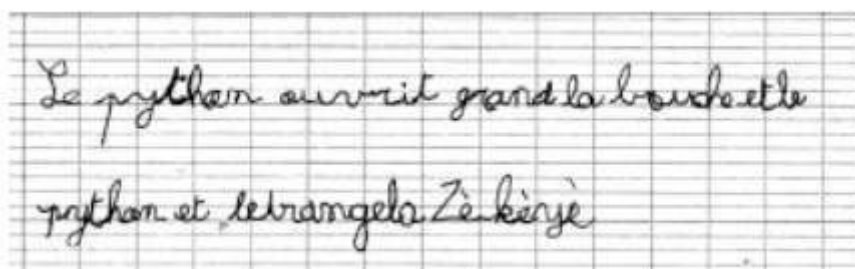 Le python ouvrit grand la bouche et le
python et letrangela Zèkèyè